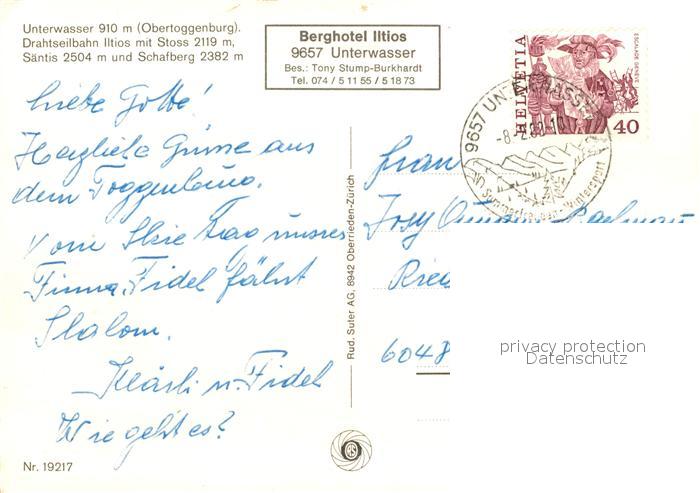 Unterwasser 910 m (Obertoggenburg).
Drahtseilbahn Iltios mit Stoss 2119 m,
Säntis 2504 m und Schafberg 2382 m
Berghotel Iltios
9657 Unterwasser
Bes.: Tony Stump-Burkhardt
Tel. 074 / 5 11 55 / 5 18 73
HELVETIA
ESCALADE GENÈVE
40
9657 UNTERWASSER
-8.2.80-10
Wintersport
Liebe Gotte!
Herzliche Grüsse aus
dem Toggenburg.
Vom Skie Tag unsres
Firma. Fidel fährt
Slalom.
Kläsli u. Fidel
Wie geht es?
Rud. Suter AG, 8942 Oberrieden-Zürich
Frau
Josy
6048
privacy protection
Datenschutz
Nr. 19217